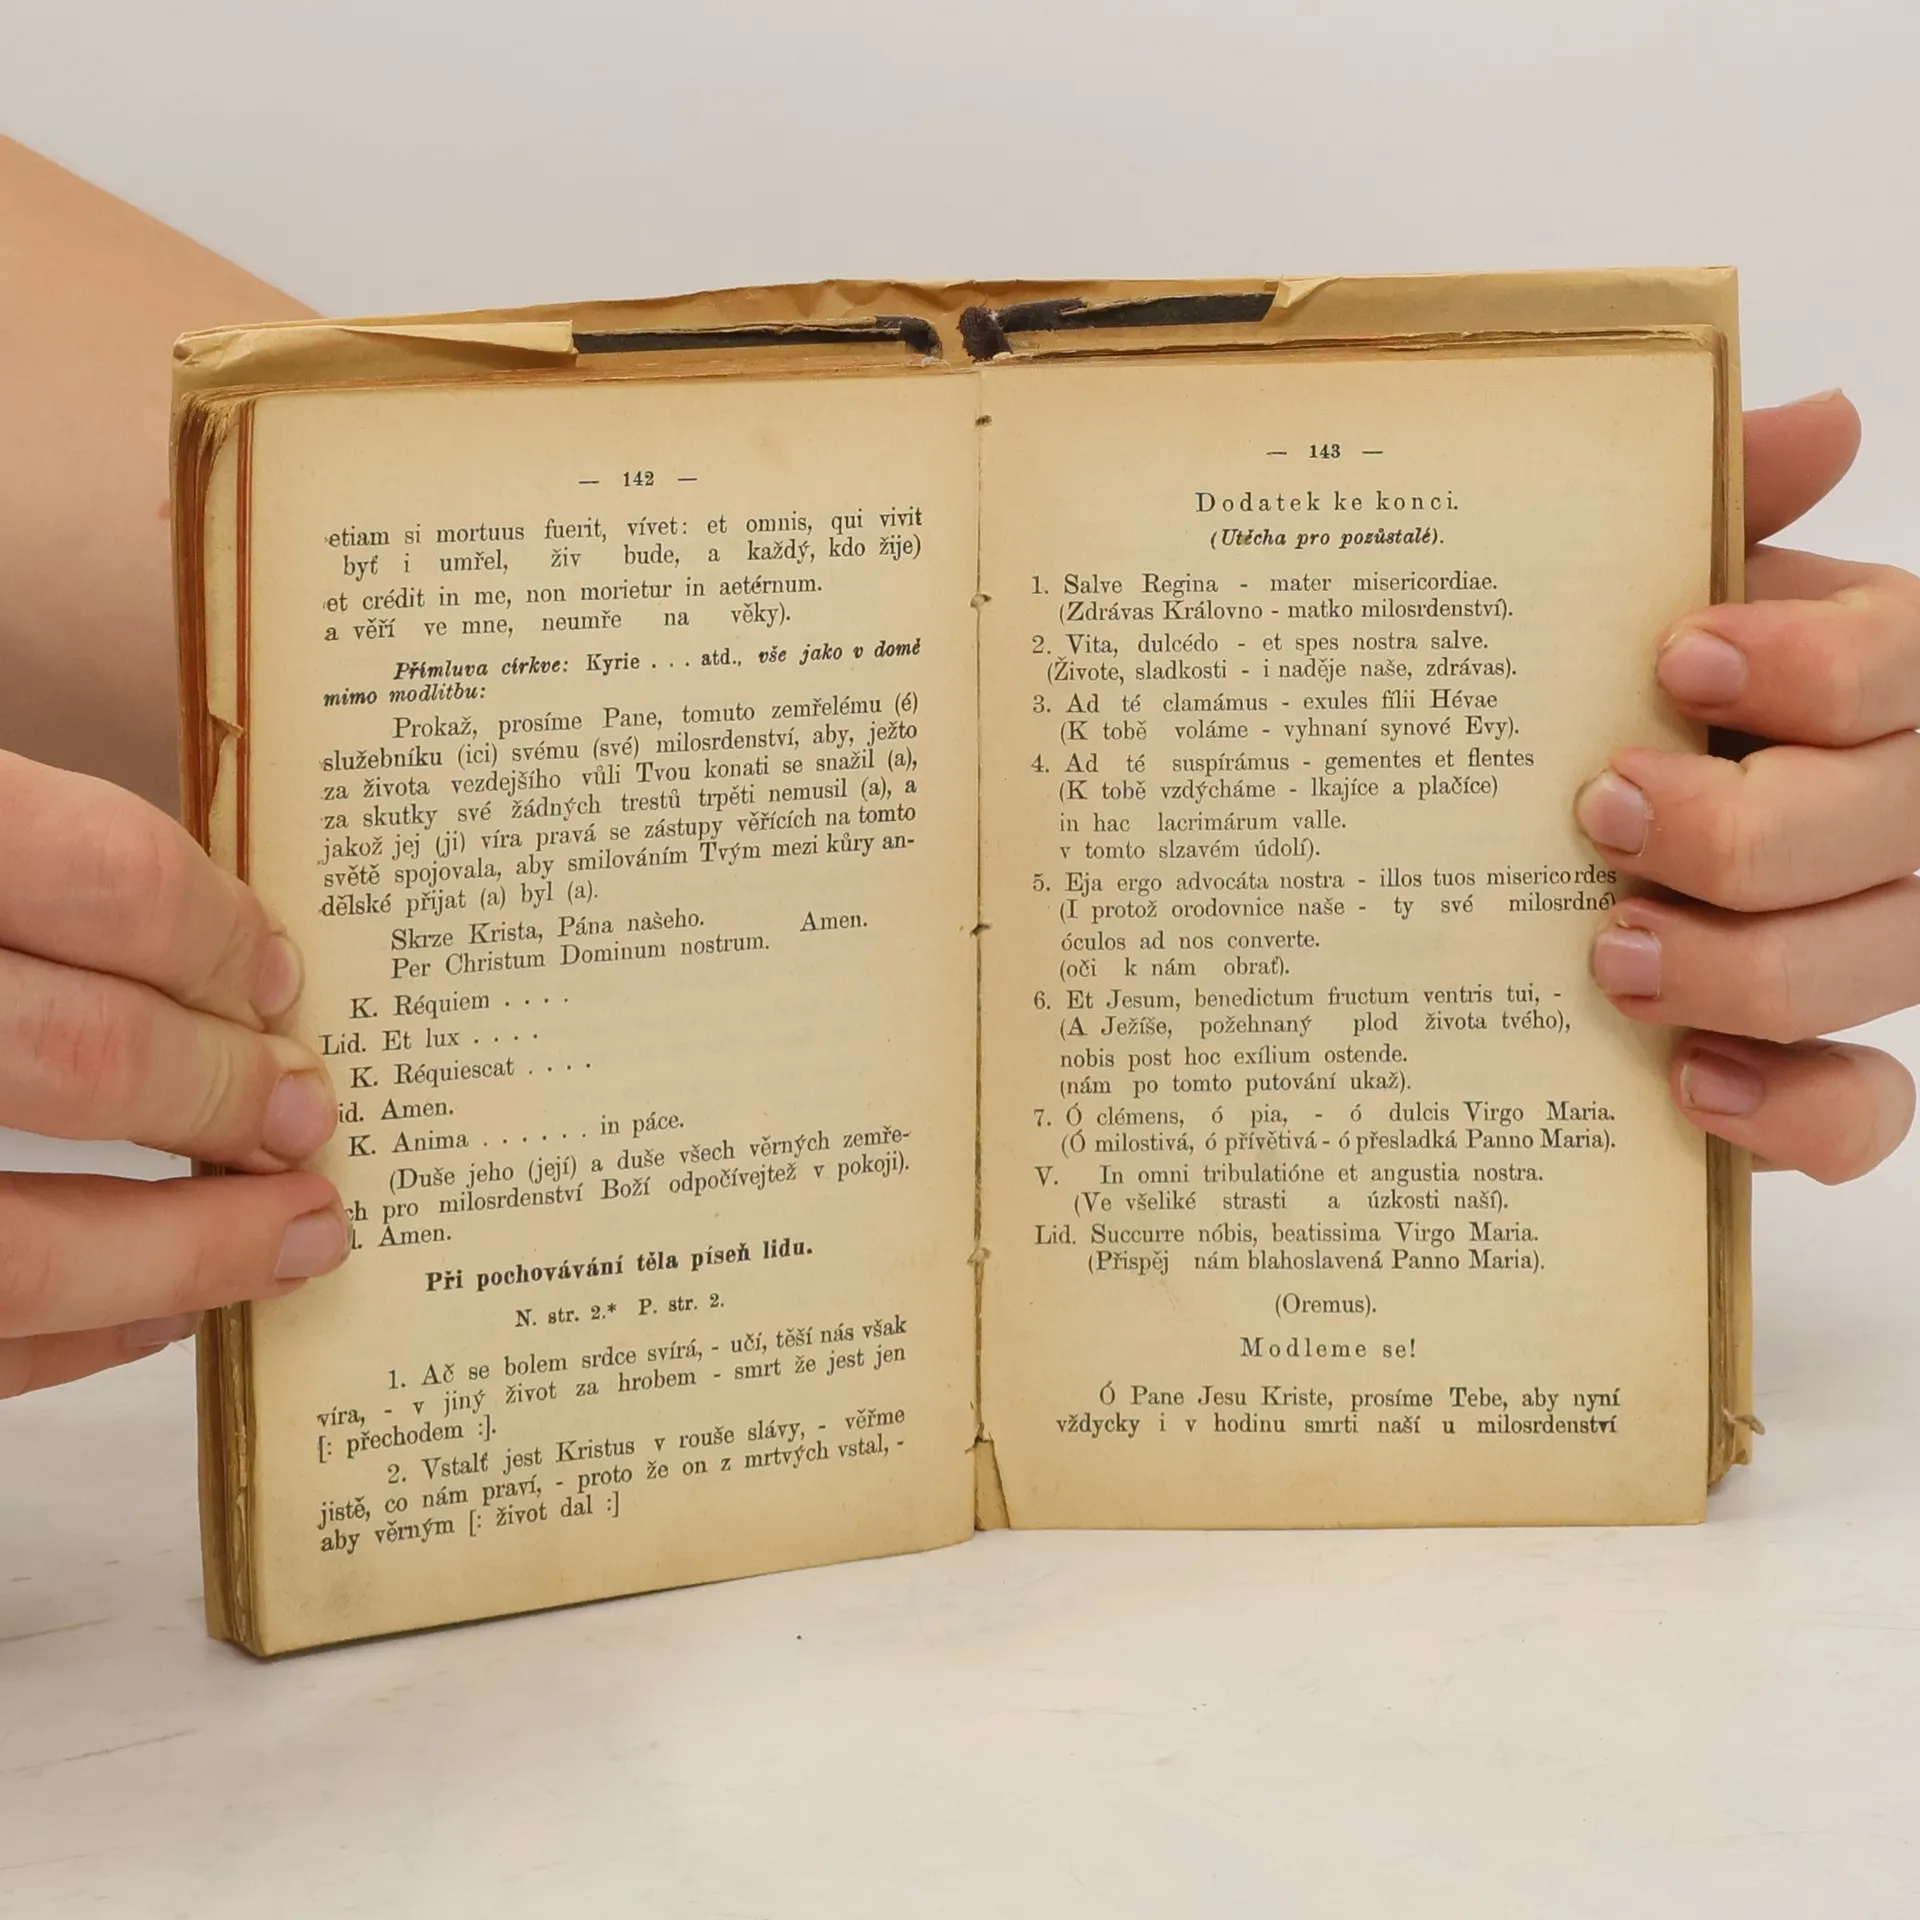 — 142 —
etiam si mortuus fuerit, vívet: et omnis, qui vivit
byť i umřel, živ bude, a každý, kdo žije)
et crédit in me, non morietur in aetérnum.
a věří ve mne, neumře na věky).
Přímluva církve: Kyrie . . . atd., vše jako v domě
mimo modlitbu:
Prokaž, prosíme Pane, tomuto zemřelému (é)
služebníku (ici) svému (své) milosrdenství, aby, ježto
za života vezdejšího vůli Tvou konati se snažil (a),
za skutky své žádných trestů trpěti nemusil (a), a
jakož jej (ji) víra pravá se zástupy věřících na tomto
světě spojovala, aby smilováním Tvým mezi kůry an-
dělské přijat (a) byl (a).
Skrze Krista, Pána našeho. Amen.
Per Christum Dominum nostrum.
K. Réquiem . . . .
Lid. Et lux . . . .
K. Réquiescat . . . .
id. Amen.
K. Anima . . . . . . in páce.
(Duše jeho (její) a duše všech věrných zemře-
ch pro milosrdenství Boží odpočívejtež v pokoji).
Amen.
Při pochovávání těla píseň lidu.
N. str. 2.* P. str. 2.
1. Ač se bolem srdce svírá, - učí, těší nás však
víra, - v jiný život za hrobem - smrt že jest jen
[: přechodem :].
2. Vstalť jest Kristus v rouše slávy, - věřme
jistě, co nám praví, - proto že on z mrtvých vstal, -
aby věrným [: život dal :]
— 143 —
Dodatek ke konci.
(Utěcha pro pozůstalé).
1. Salve Regina - mater misericordiae.
(Zdrávas Královno - matko milosrdenství).
2. Vita, dulcédo - et spes nostra salve.
(Živote, sladkosti - i naděje naše, zdrávas).
3. Ad té clamámus - exules fílii Hévae
(K tobě voláme - vyhnaní synové Evy).
4. Ad té suspírámus - gementes et flentes
(K tobě vzdýcháme - lkajíce a plačíce)
in hac lacrimárum valle.
v tomto slzavém údolí).
5. Eja ergo advocáta nostra - illos tuos misericordes
(I protož orodovnice naše - ty své milosrdné)
óculos ad nos converte.
(oči k nám obrať).
6. Et Jesum, benedictum fructum ventris tui, -
(A Ježíše, požehnaný plod života tvého),
nobis post hoc exílium ostende.
(nám po tomto putování ukaž).
7. Ó clémens, ó pia, - ó dulcis Virgo Maria.
(Ó milostivá, ó přívětivá - ó přesladká Panno Maria).
V. In omni tribulatióne et angustia nostra.
(Ve všeliké strasti a úzkosti naší).
Lid. Succurre nóbis, beatissima Virgo Maria.
(Přispěj nám blahoslavená Panno Maria).
(Oremus).
Modleme se!
Ó Pane Jesu Kriste, prosíme Tebe, aby nyní
vždycky i v hodinu smrti naší u milosrdenství